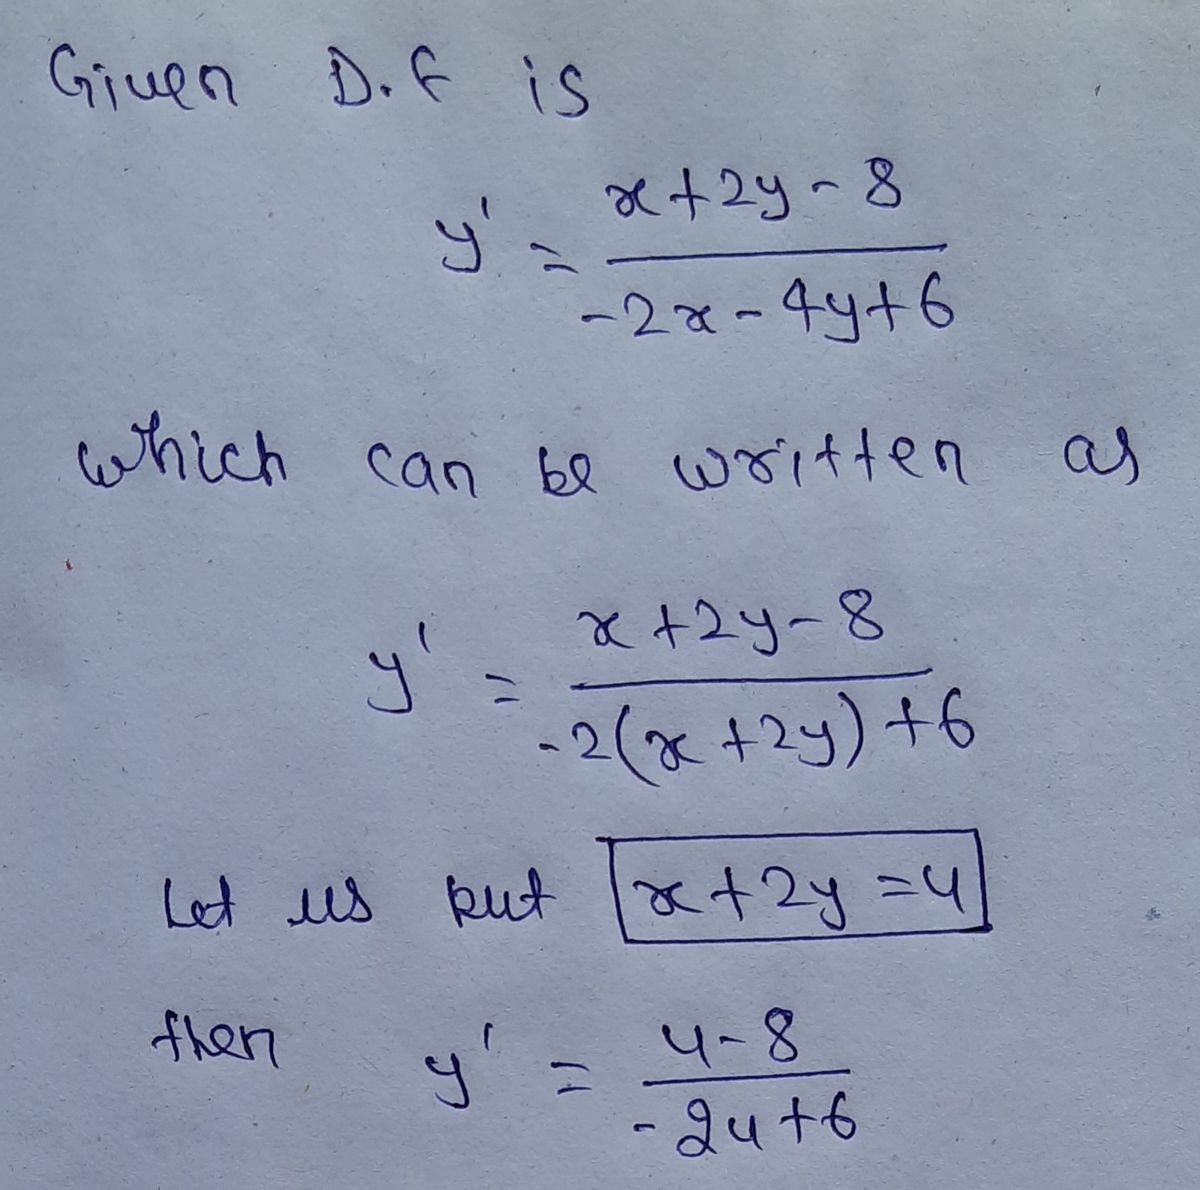 Given D.E is
y' = x+2y-8 / -2x-4y+6
which can be written as
y' = x+2y-8 / -2(x+2y)+6
Let us put x+2y=u
then y' = u-8 / -2u+6